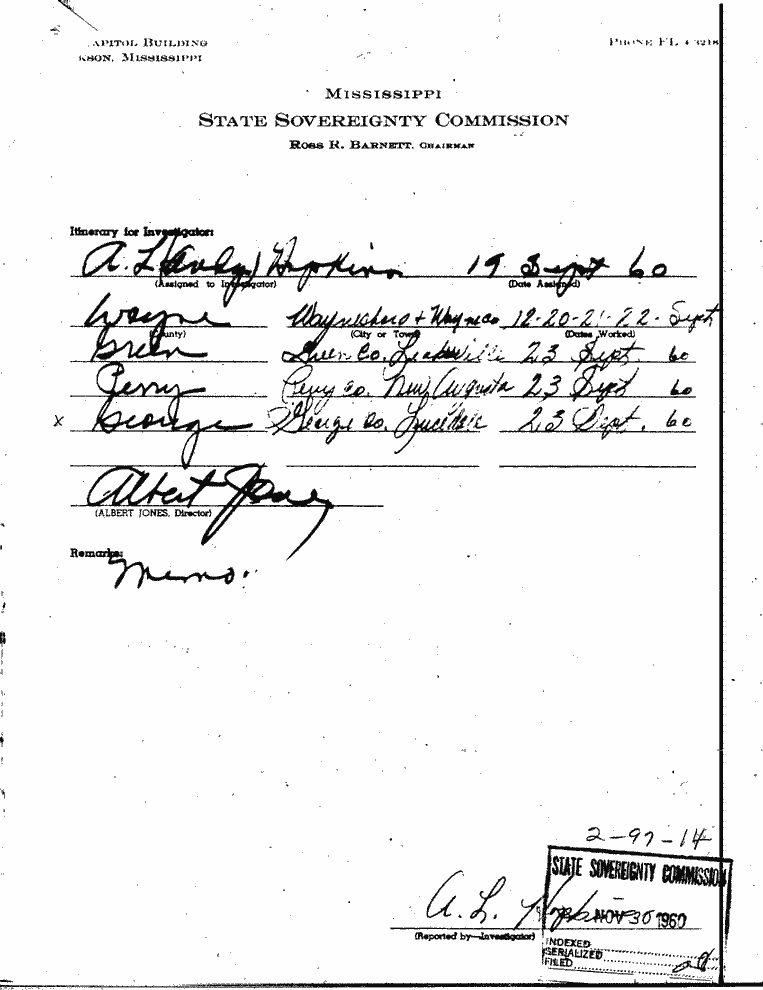 APITOL BUILDING
KSON, MISSISSIPPI
PHONE FL 4-3218
MISSISSIPPI
STATE SOVEREIGNTY COMMISSION
ROSS R. BARNETT, CHAIRMAN
Itinerary for Investigator:
A. L. (Andy) Hopkins 19 Sept 60
(Assigned to Investigator) (Date Assigned)
Wayne Waynesboro + Wayne Co 12-20-21-22- Sept
(County) (City or Town) (Dates Worked)
Green Green Co. Leakesville 23 Sept 60
Perry Perry Co. New Augusta 23 Sept 60
x George George Co. Lucedale 23 Sept. 60
Albert Jones
(ALBERT JONES, Director)
Remarks:
Memo.
2-97-14
STATE SOVEREIGNTY COMMISSION
A. L. Hopkins NOV 30 1960
(Reported by—Investigator)
INDEXED
SERIALIZED
FILED